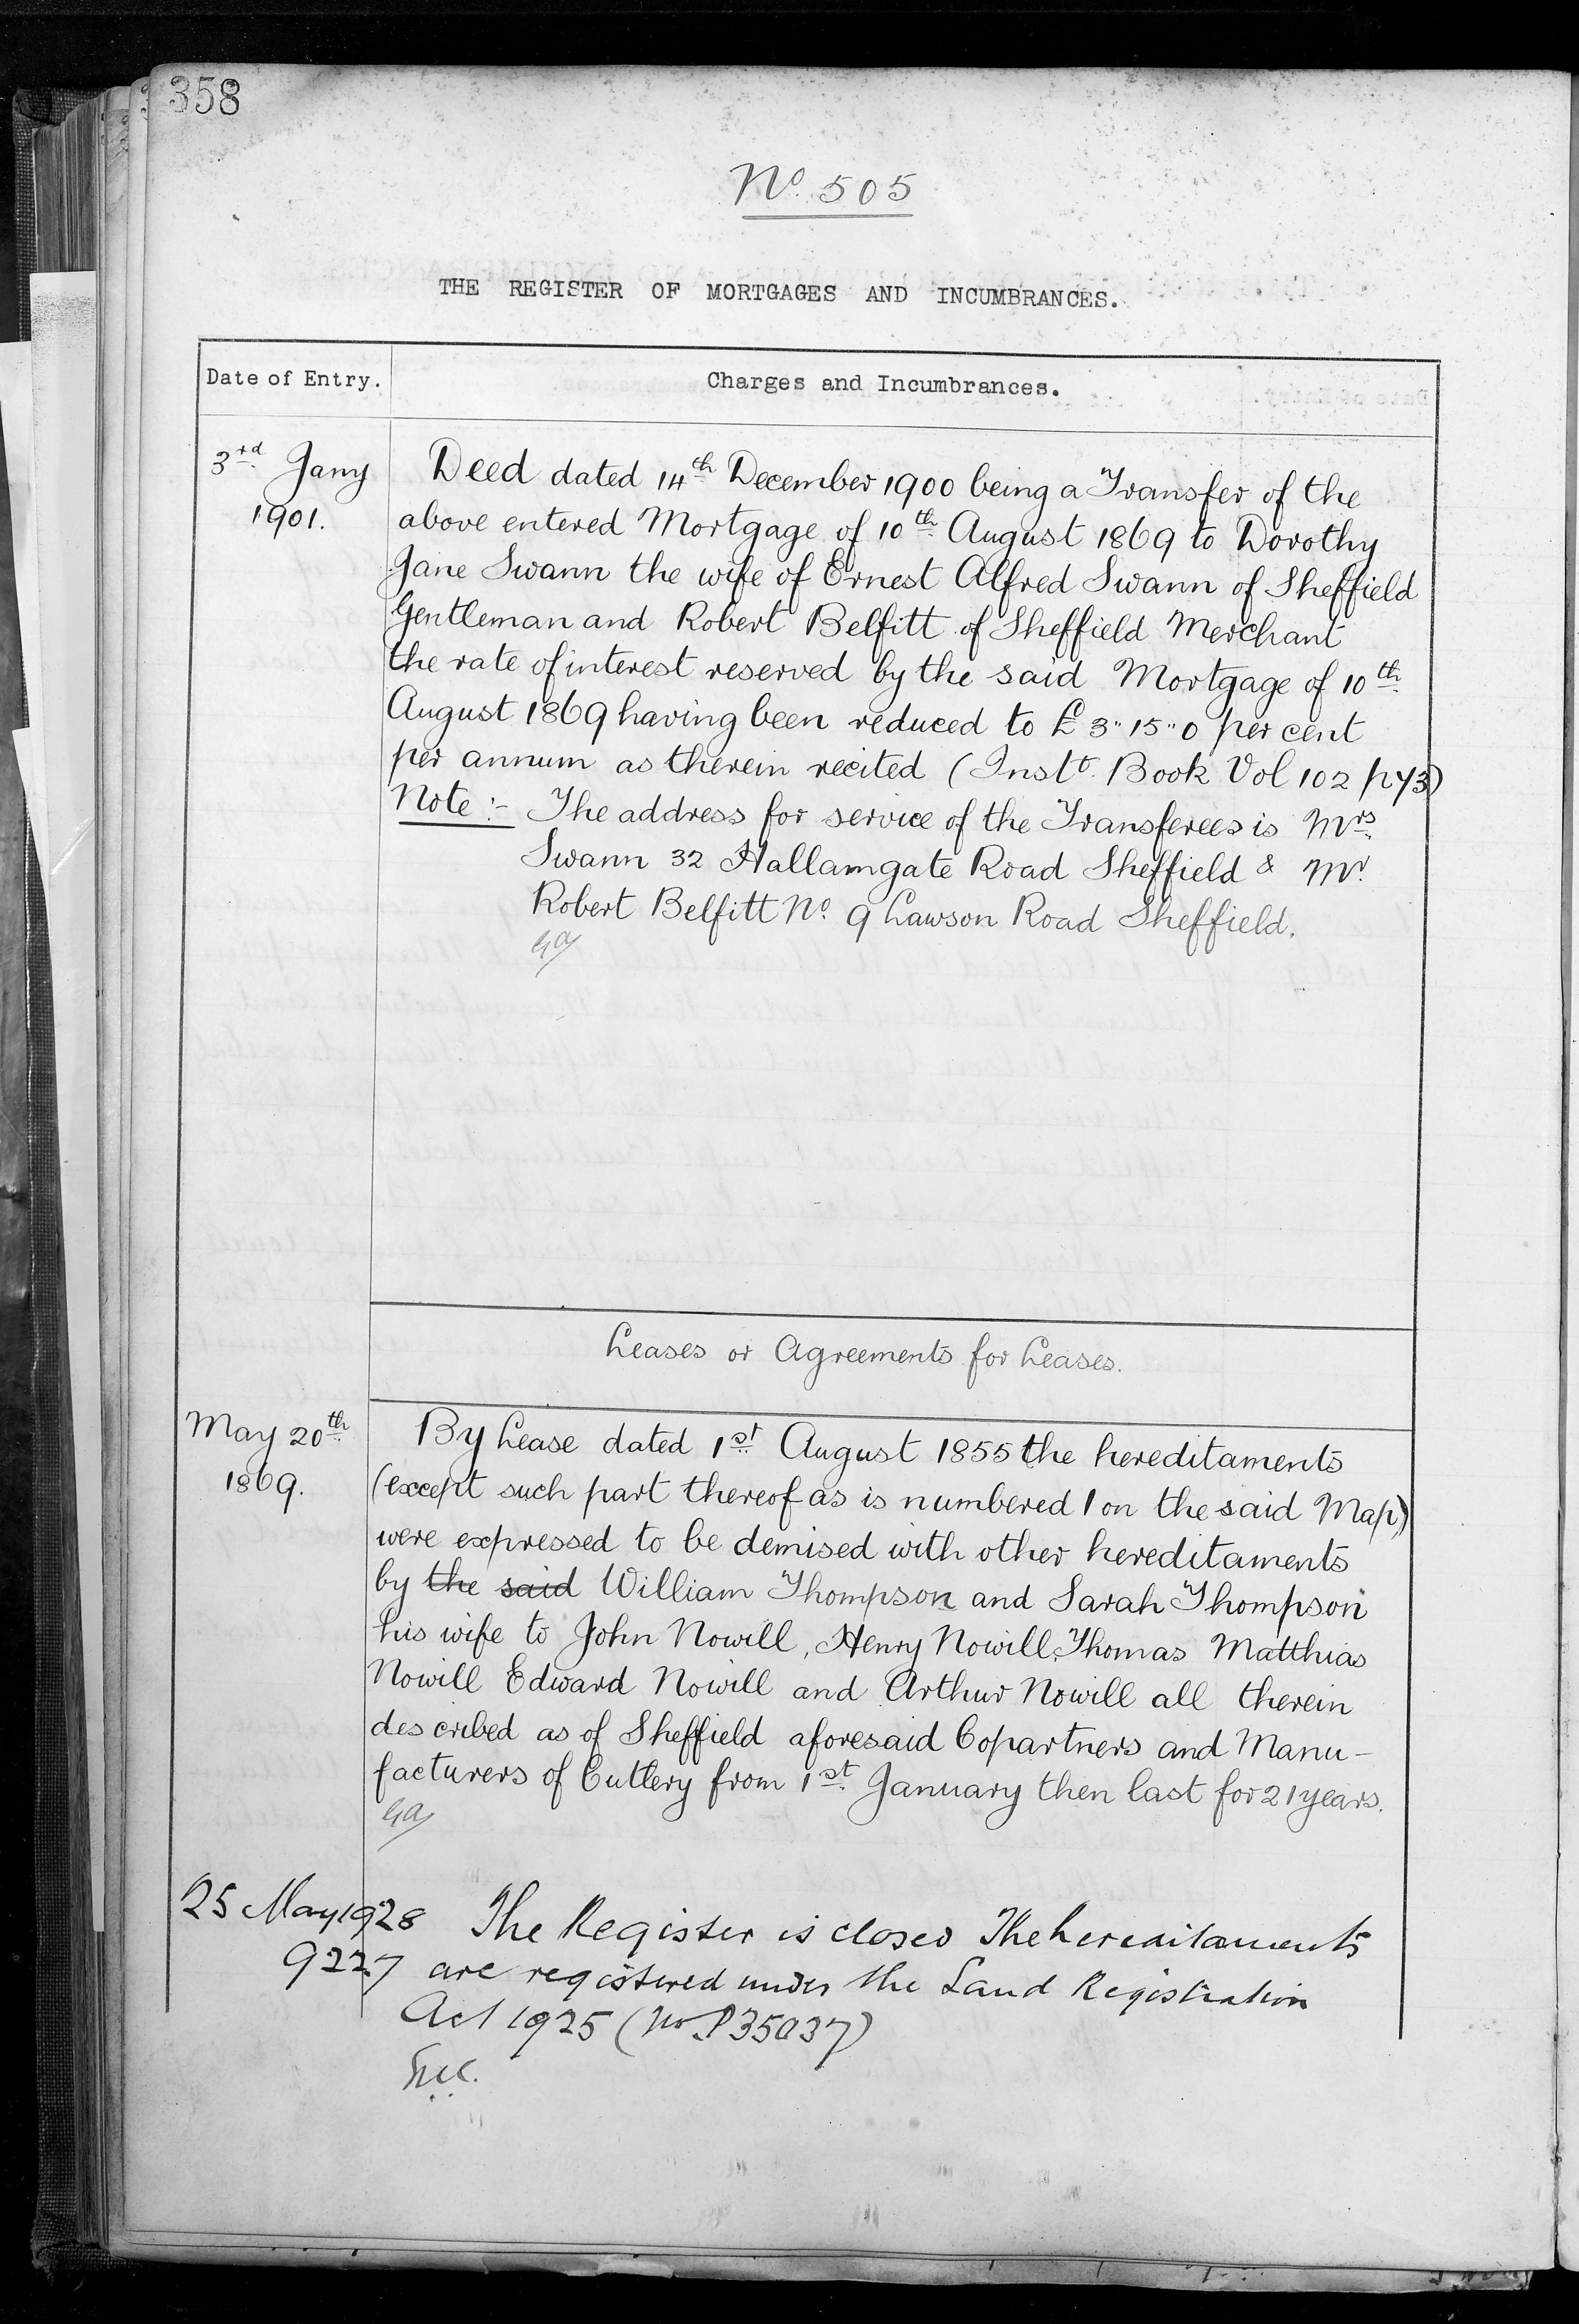 358
No. 505
THE REGISTER OF MORTGAGES AND INCUMBRANCES.
Date of Entry.
Charges and Incumbrances.
3rd Jany
1901.
Deed dated 14th December 1900 being a Transfer of the
above entered Mortgage of 10th August 1869 to Dorothy
Jane Swann the wife of Ernest Alfred Swann of Sheffield
Gentleman and Robert Belfitt of Sheffield Merchant
the rate of interest reserved by the said Mortgage of 10th
August 1869 having been reduced to £3"15"0 per cent
per annum as therein recited (Instt. Book Vol 102 p 73)
Note :- The address for service of the Transferees is Mrs.
Swann 32 Hallamgate Road Sheffield & Mr.
Robert Belfitt No. 9 Lawson Road Sheffield.
Leases or Agreements for Leases.
May 20th
1869.
By Lease dated 1st August 1855 the hereditaments
(except such part thereof as is numbered 1 on the said Map)
were expressed to be demised with other hereditaments
by the said William Thompson and Sarah Thompson
his wife to John Nowill, Henry Nowill, Thomas Matthias
Nowill Edward Nowill and Arthur Nowill all therein
described as of Sheffield aforesaid Copartners and Manu-
facturers of Cutlery from 1st January then last for 21 years.
25 May 1928
The Register is closed The hereditaments
9227
are registered under the Land Registration
Act 1925 (No. P35037)